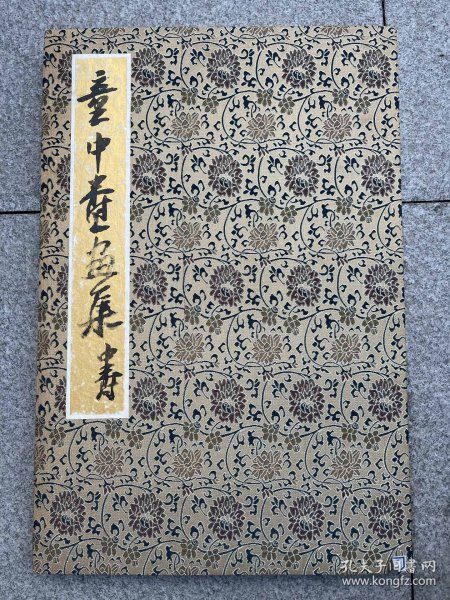 童中焘画集
孔夫子旧书网
www.kongfz.com